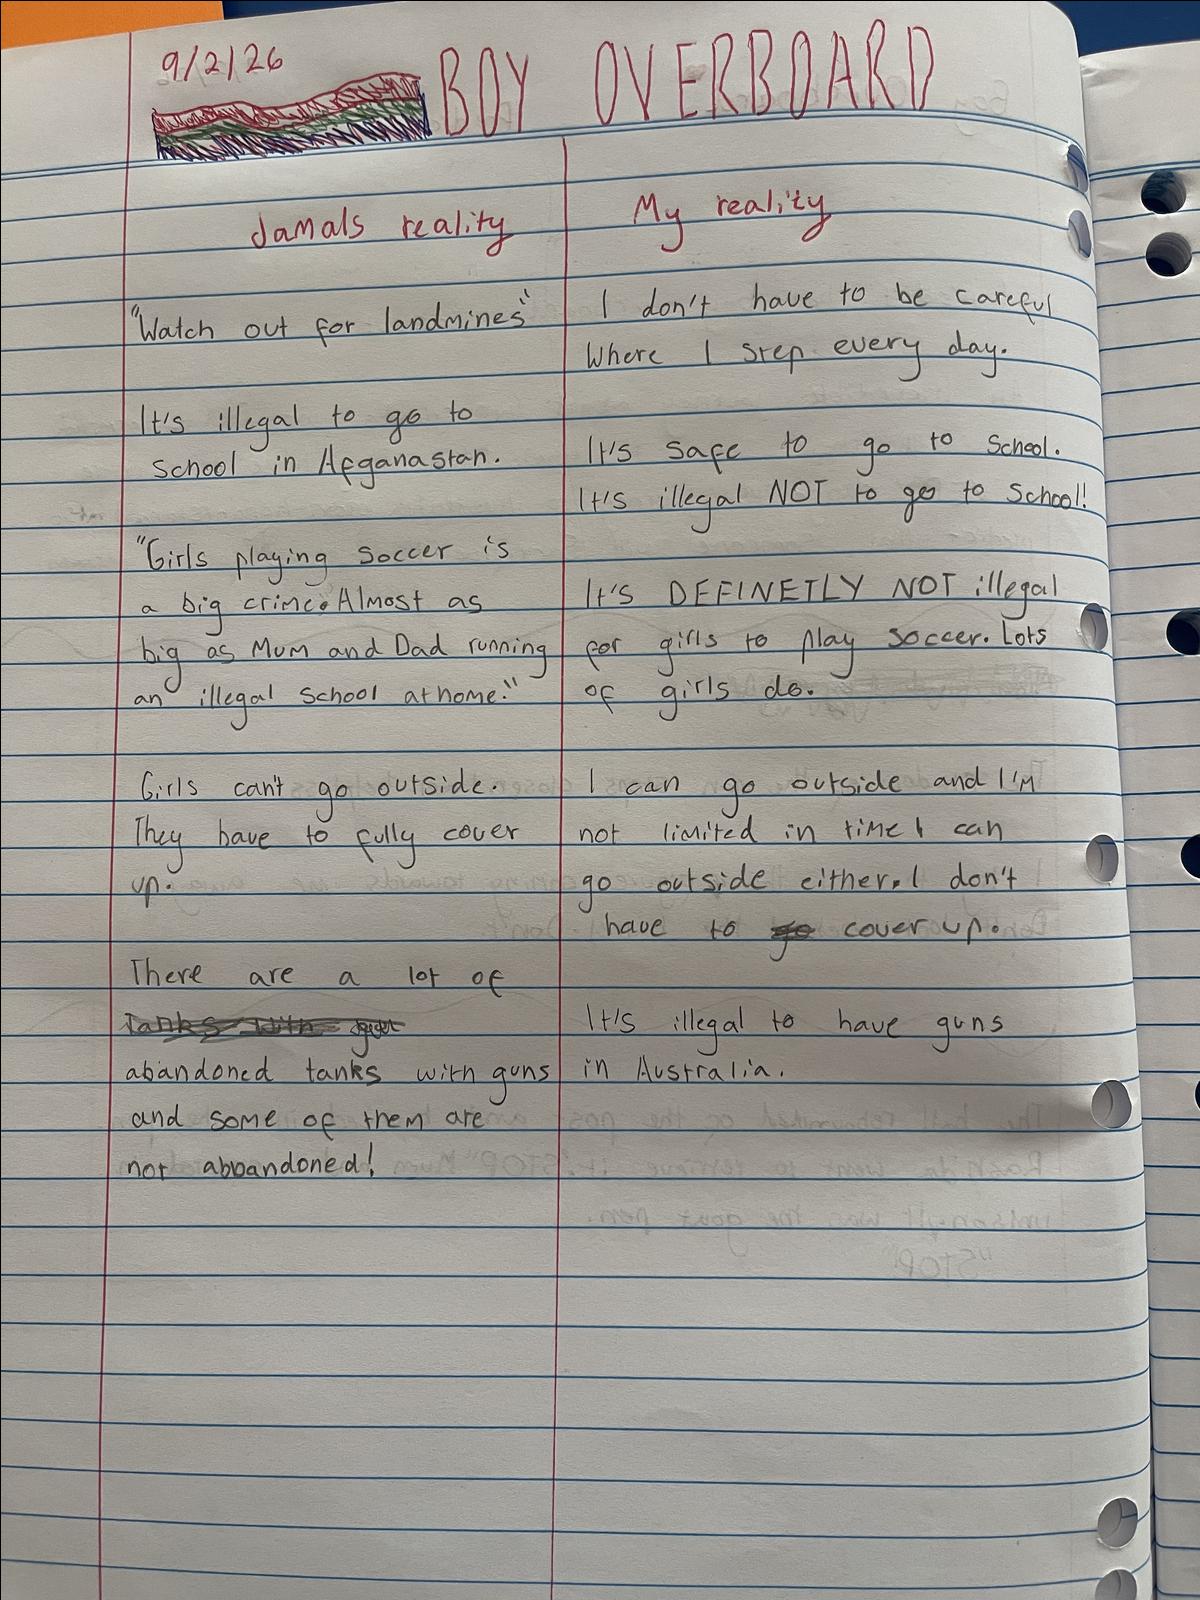 9/2/26
BOY OVERBOARD
Jamals reality
"Watch out for landmines"
It's illegal to go to
school in Afganastan.
"Girls playing soccer is
a big crime. Almost as
big as Mum and Dad running
an illegal school at home."
Girls can't go outside.
They have to fully cover
up.
There are a lot of
Tanks with
abandoned tanks with guns
and some of them are
not abbandoned!
My reality
I don't have to be careful
Where I step every day.
It's safe to go to School.
It's illegal NOT to go to School!
It's DEFINETLY NOT illegal
for girls to play soccer. Lots
of girls do.
I can go outside and I'm
not limited in time I can
go outside either. I don't
have to go cover up.
It's illegal to have guns
in Australia.